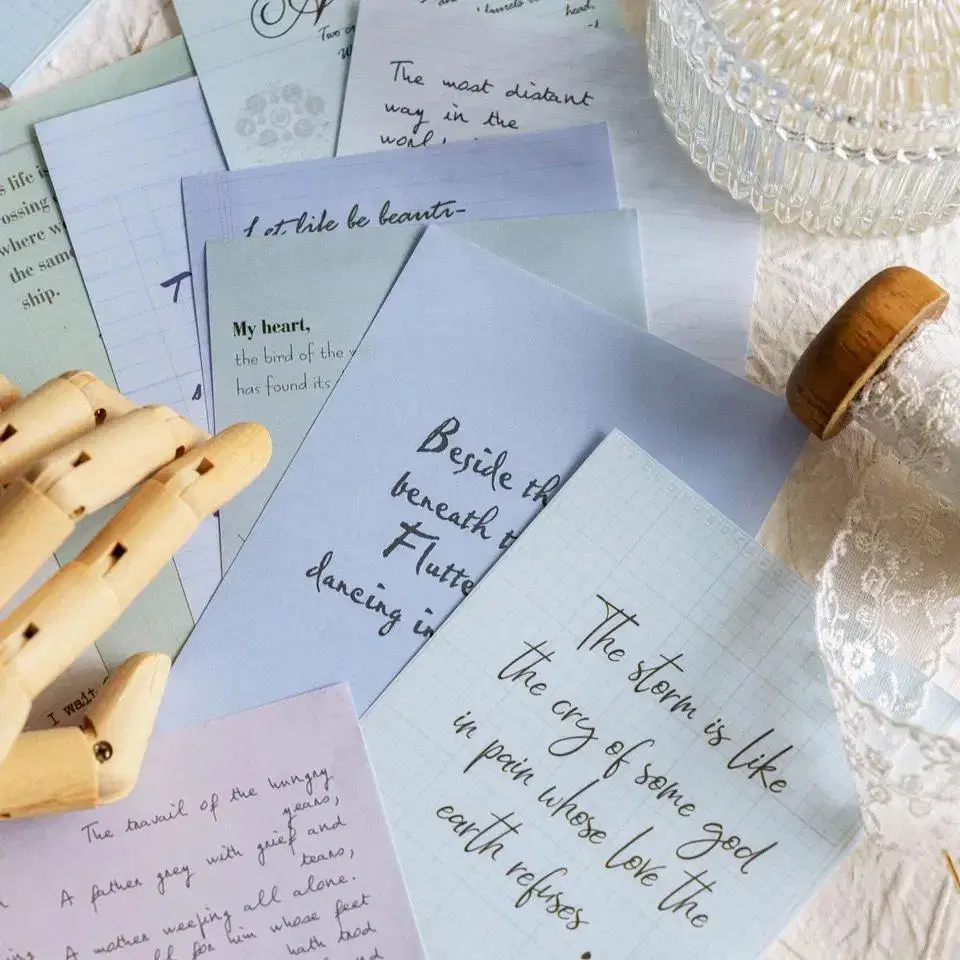 Two
head.
The most distant
way in the
s life is
ossing
where w
the same
ship.
Let life be beauti-
T
s
My heart,
the bird of the
has found its
Beside th
beneath t
Flutte
dancing in
The storm is like
the cry of some god
in pain whose love the
earth refuses
.
I wait
The travail of the hungry
years,
A father grey with grief and
tears,
A mother weeping all alone.
for him whose feet
hath trod